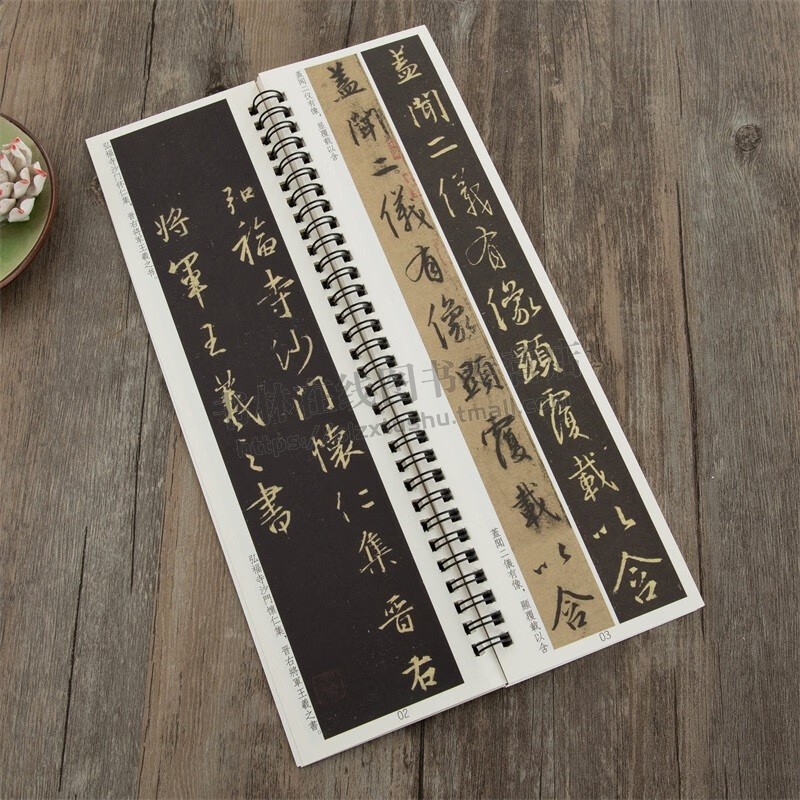 弘福寺沙门怀仁集，晋右将军王羲之书。
弘福寺沙门懷仁集晋右
將軍王羲之書
弘福寺沙門懷仁集，晉右將軍王羲之書。
02
蓋闻二仪有像，显覆载以含
蓋聞二儀有像顯覆載以含
蓋聞二儀有像顯覆載以含
蓋聞二儀有像，顯覆載以含
03
林在线图书
tmall.com